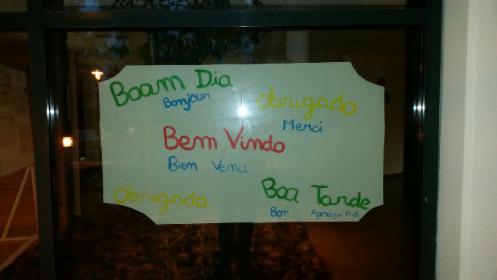 Boam Dia
Bonjour
Obrigado
Merci
Bem Vindo
Bien Venu
Obrigada
Boa Tarde
Bon Après-midi